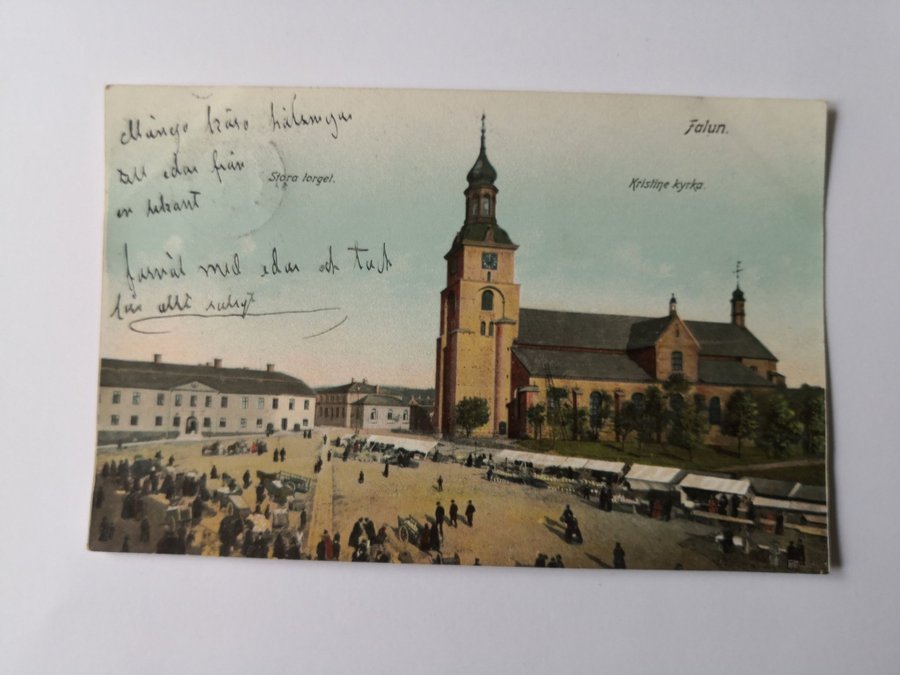 Många kära hälsningar
till edar från
en bekant
farväl med edar och tack
för allt
Falun.
Stora torget.
Kristine kyrka.